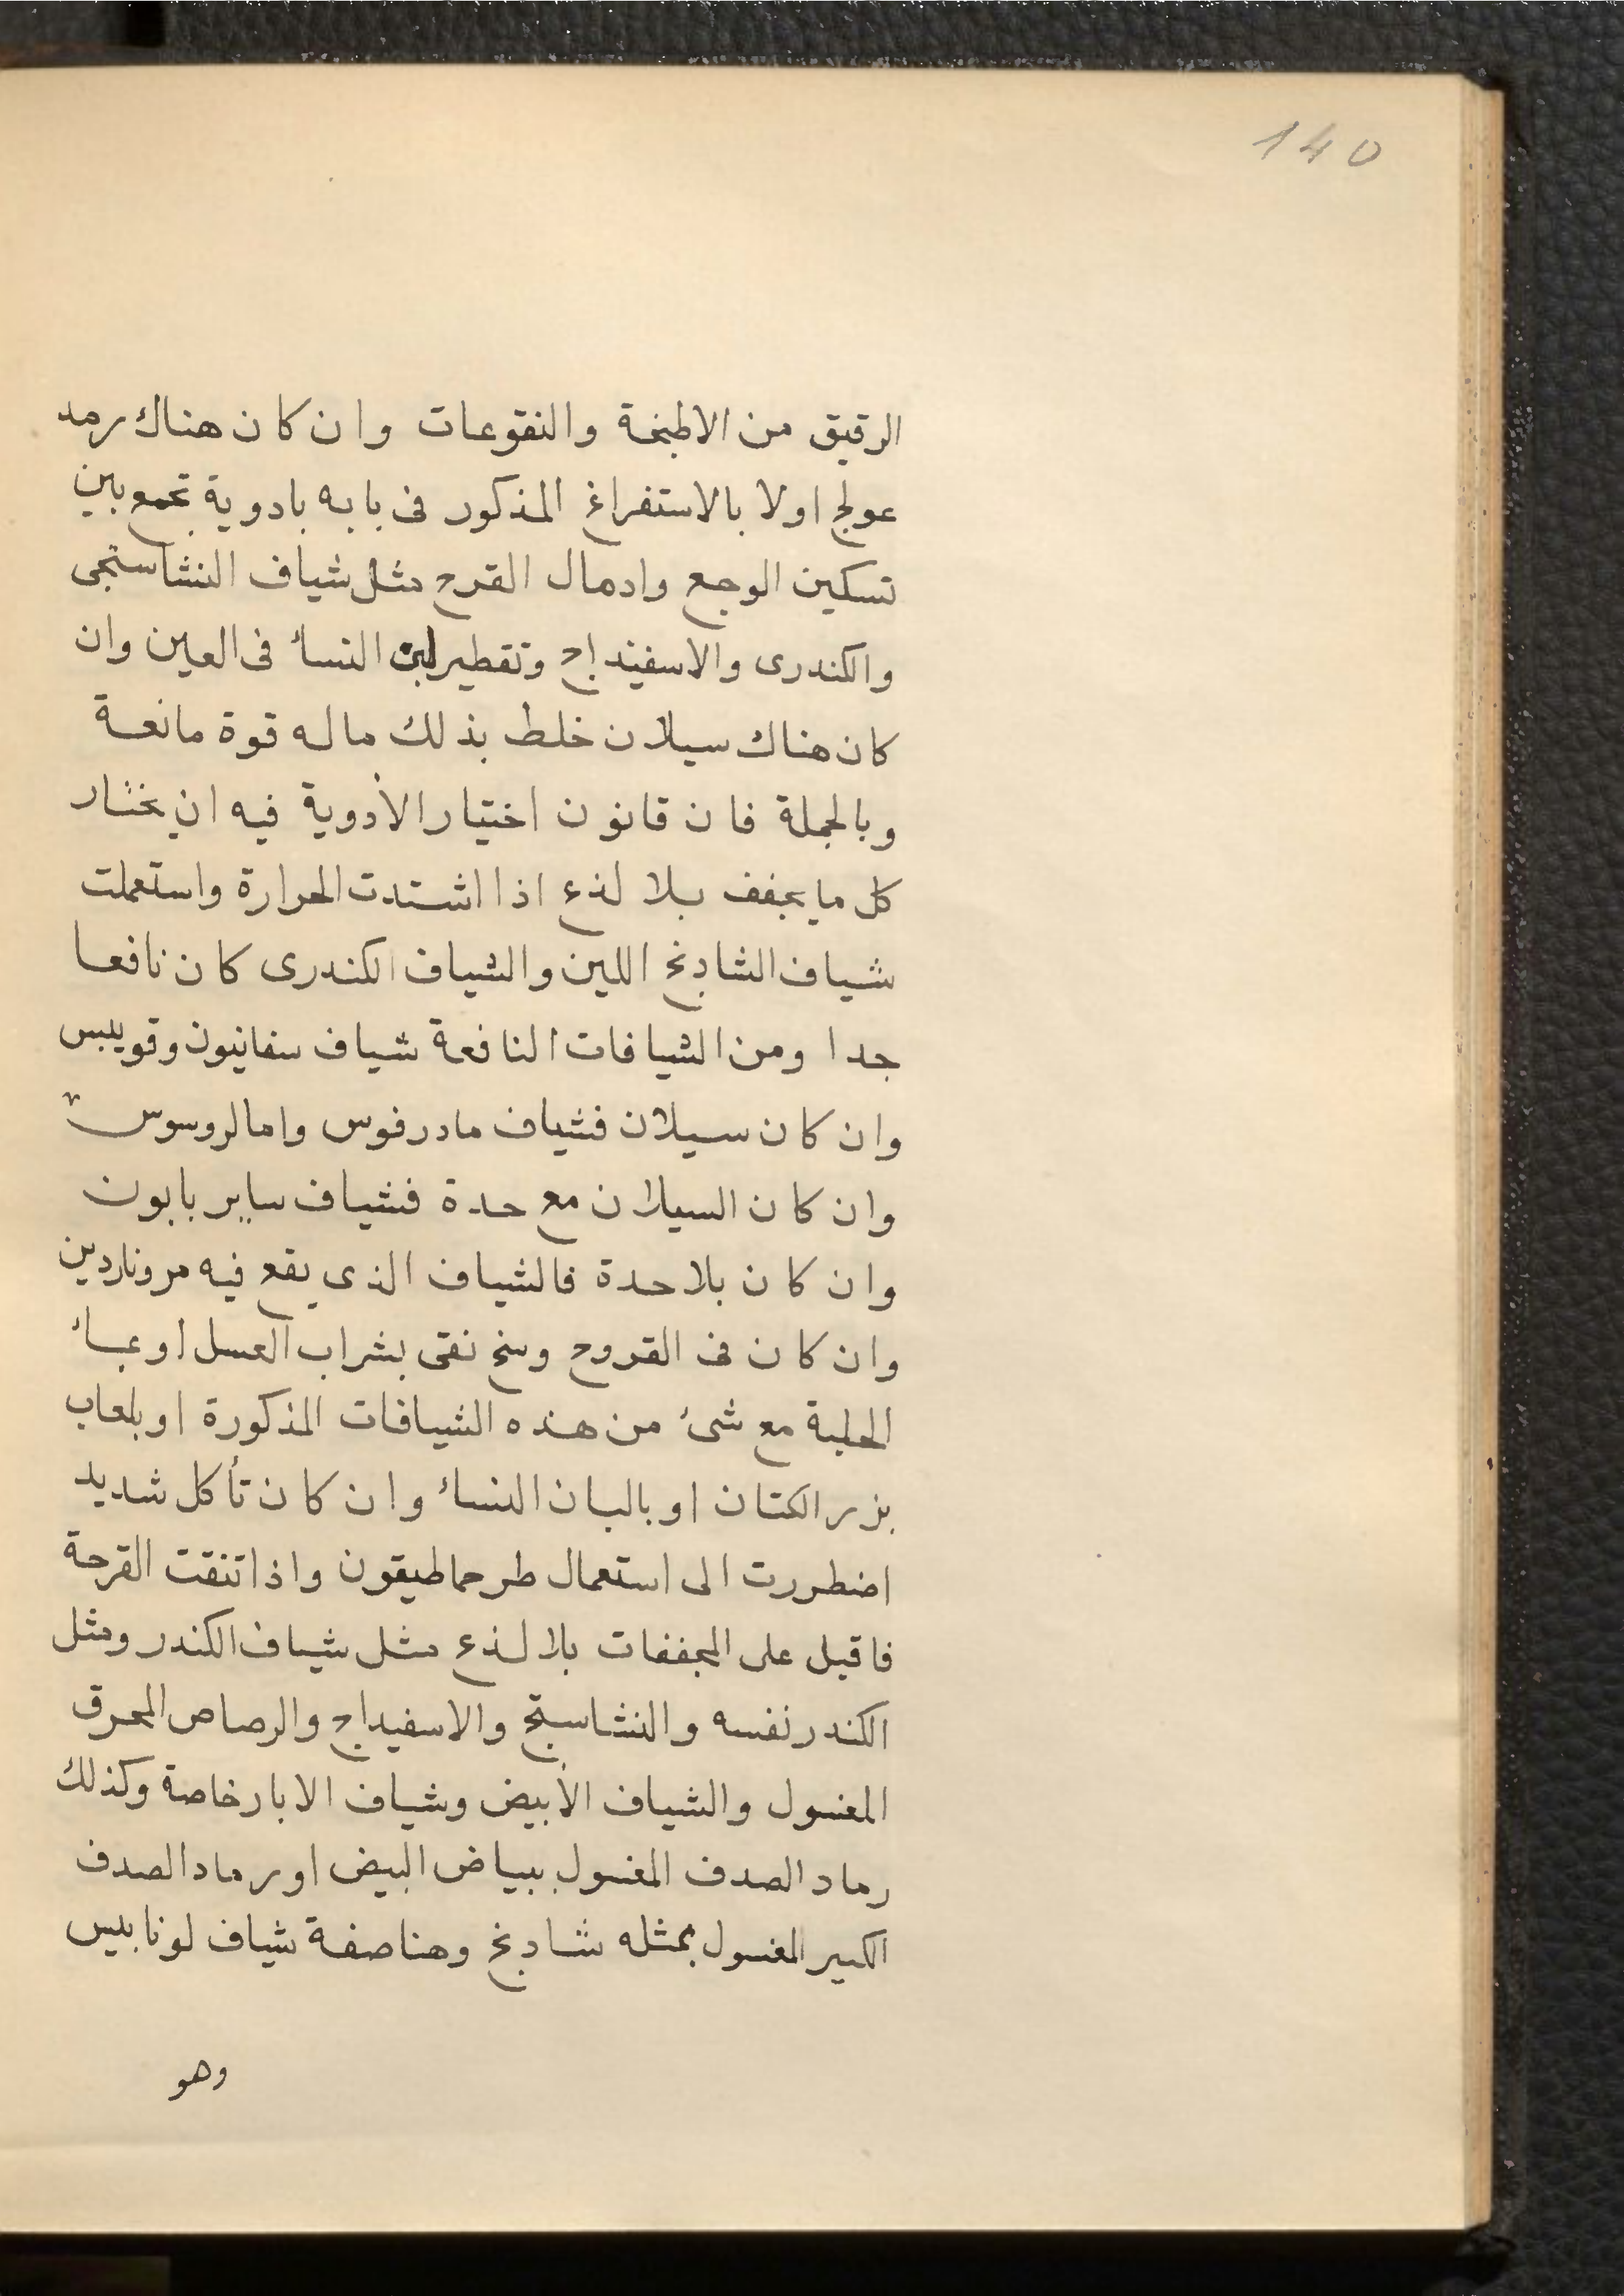 140
الرقيق من الاطبخة والنقوعات وان كان هناك رمد
عولج اولا بالاستفراغ المذكور فى بابه بادوية تجمع بين
تسكين الوجع وادمال القرح مثل شياف النشاستجى
والكندرى والاسفيداج وتقطير لبن النساء فى العين وان
كان هناك سيلان خلط بذلك ما له قوة مانعة
وبالجملة فان قانون اختيار الأدوية فيه ان يختار
كل ما يجفف بلا لذع اذا اشتدت الحرارة واستعملت
شياف الشادنج اللين والشياف الكندرى كان نافعا
جدا ومن الشيافات النافعة شياف سفانيون وقويبس
وان كان سيلان فشياف مادرفوس وامالروسوس
وان كان السيلان مع حدة فشياف ساير بابون
وان كان بلا حدة فالشياف الذى يقع فيه مر وناردين
وان كان فى القروح وسخ نقى بشراب العسل او بماء
الحلبة مع شئ من هذه الشيافات المذكورة او بلعاب
بزر الكتان او بالبان النساء وان كان تأكل شديد
اضطررت الى استعمال طرحماطيقون واذا تنقت القرحة
فاقبل على المجففات بلا لذع مثل شياف الكندر ومثل
الكندر نفسه والنشاستج والاسفيداج والرصاص المحرق
المغسول والشياف الأبيض وشياف الابار خاصة وكذلك
رماد الصدف المغسول ببياض البيض او رماد الصدف
الكبير المغسول بمثله شادنج وهنا صفة شياف لونابيس
وهو